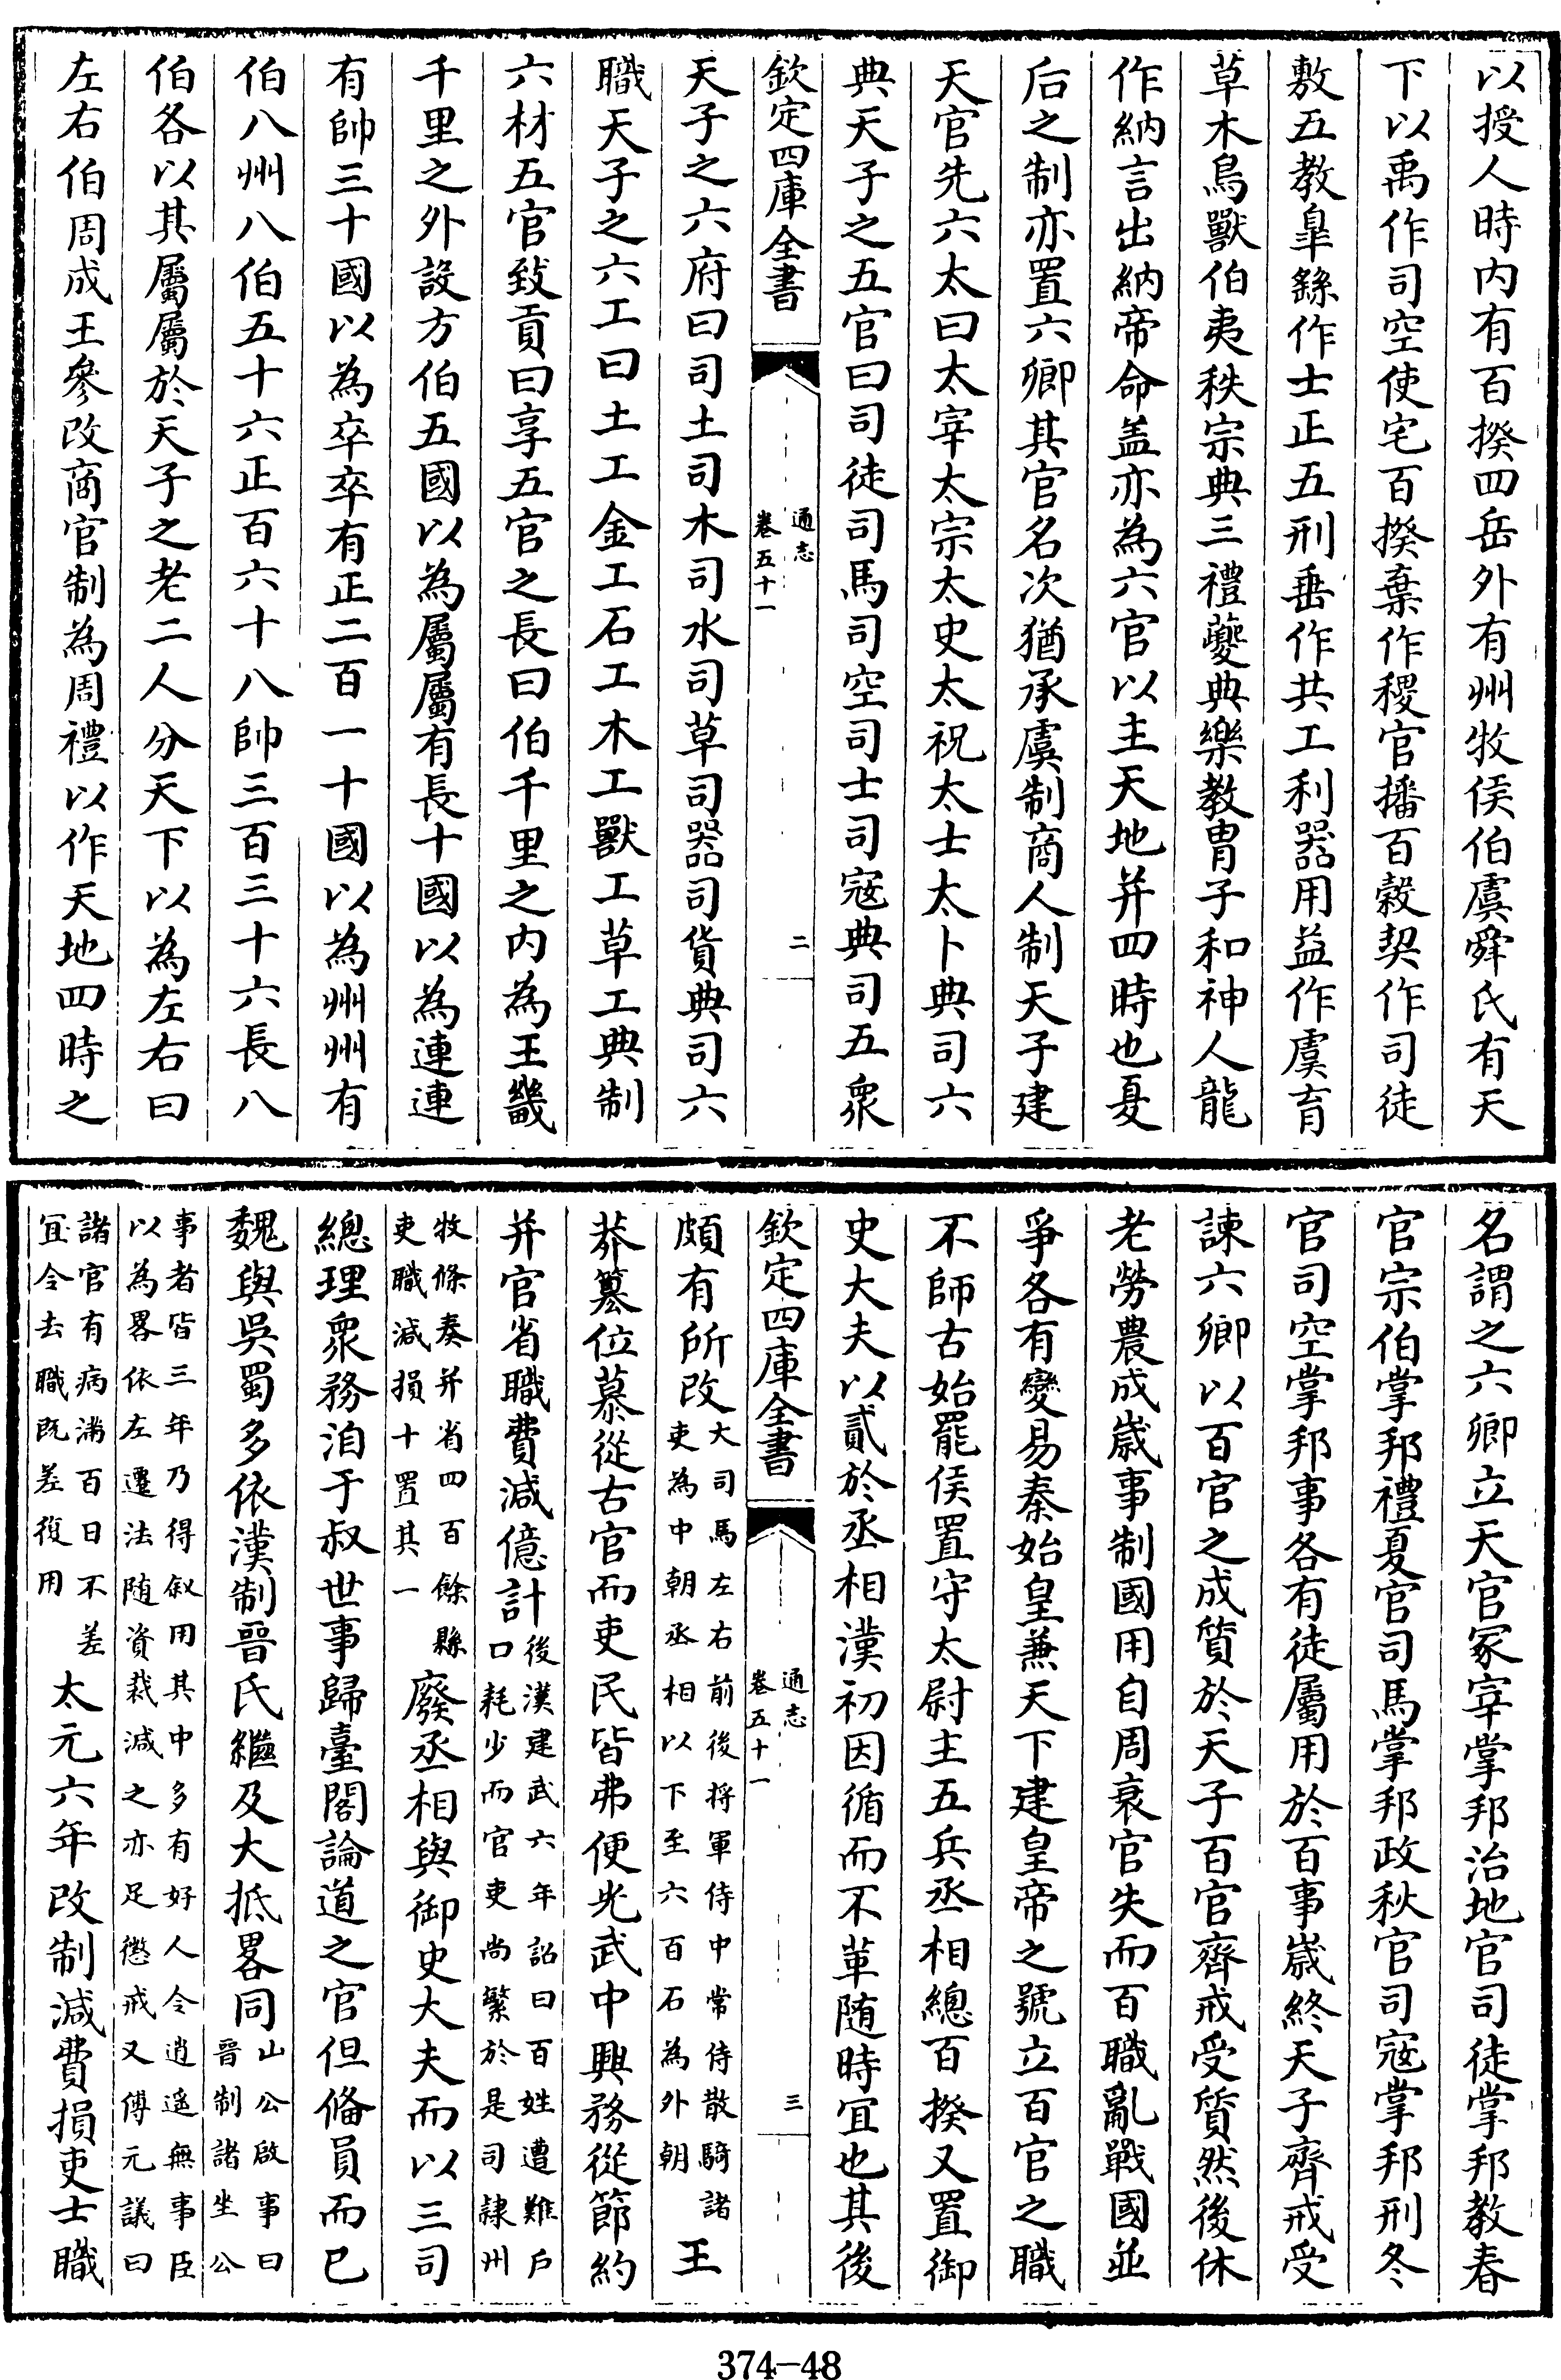 以授人時内有百揆四岳外有州牧侯伯虞舜氏有天
下以禹作司空使宅百揆棄作稷官播百穀契作司徒
敷五教皐繇作士正五刑垂作共工利器用益作虞育
草木鳥獸伯夷秩宗典三禮夔典樂教胄子和神人龍
作納言出納帝命盖亦為六官以主天地并四時也夏
后之制亦置六卿其官名次猶承虞制商人制天子建
天官先六太曰太宰太宗太史太祝太士太卜典司六
典天子之五官曰司徒司馬司空司士司寇典司五衆
欽定四庫全書
通志
卷五十一
二
天子之六府曰司土司木司水司草司器司貨典司六
職天子之六工曰土工金工石工木工獸工草工典制
六材五官致貢曰享五官之長曰伯千里之内為王畿
千里之外設方伯五國以為屬屬有長十國以為連連
有帥三十國以為卒卒有正二百一十國以為州州有
伯八州八伯五十六正百六十八帥三百三十六長八
伯各以其屬屬於天子之老二人分天下以為左右曰
左右伯周成王參改商官制為周禮以作天地四時之
名謂之六卿立天官冢宰掌邦治地官司徒掌邦教春
官宗伯掌邦禮夏官司馬掌邦政秋官司寇掌邦刑冬
官司空掌邦事各有徒屬用於百事歲終天子齊戒受
諫六卿以百官之成質於天子百官齊戒受質然後休
老勞農成歲事制國用自周衰官失而百職亂戰國並
爭各有變易秦始皇兼天下建皇帝之號立百官之職
不師古始罷侯置守太尉主五兵丞相總百揆又置御
史大夫以貳於丞相漢初因循而不革随時宜也其後
欽定四庫全書
通志
卷五十一
三
頗有所改大司馬左右前後将軍侍中常侍散騎諸吏為中朝丞相以下至六百石為外朝王
莽簒位慕從古官而吏民皆弗便光武中興務從節約
并官省職費減億計後漢建武六年詔曰百姓遭難戶口耗少而官吏尚繁於是司隷州
牧條奏并省四百餘縣吏職減損十置其一廢丞相與御史大夫而以三司
總理衆務洎于叔世事歸臺閣論道之官但偹員而已
魏與吳蜀多依漢制晉氏繼及大抵畧同山公啟事曰晉制諸坐公
事者皆三年乃得敘用其中多有好人令逍遥無事臣以為畧依左遷法随資裁減之亦足懲戒又傅元議曰
諸官有病满百日不差宜令去職既差復用太元六年改制減費損吏士職
374-48